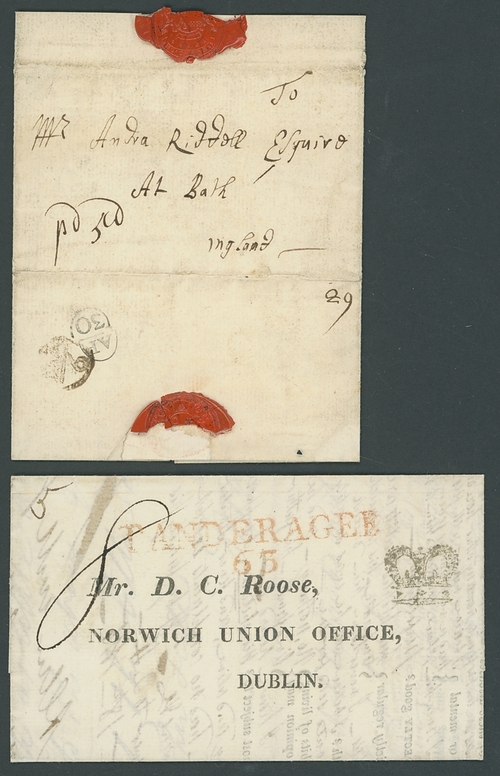 To
Mr Andra Riddell Esquire
At Bath
pd 5d
Ingland
29
AP
30
8
TANDERAGEE
65
Mr. D. C. Roose,
NORWICH UNION OFFICE,
DUBLIN.